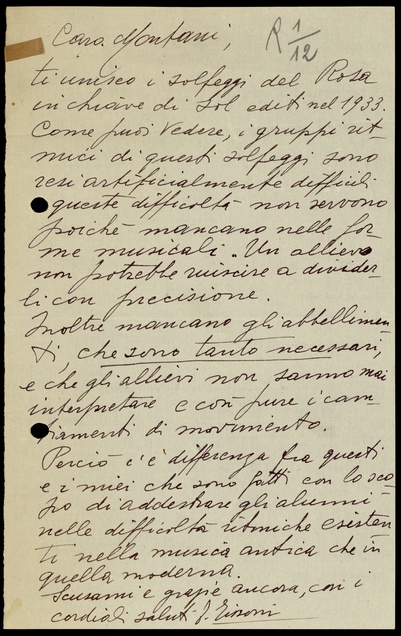 Caro Montani,
R 1/12
ti unisco i solfeggi del Rosa
in chiave di Sol editi nel 1933.
Come puoi vedere, i gruppi rit-
mici di questi solfeggi sono
resi artificialmente difficili
queste difficoltà non servono
poiché mancano nelle for-
me musicali. Un allievo
non potrebbe riuscire a divider-
li con precisione.
Inoltre mancano gli abbellimen-
ti, che sono tanto necessari,
e che gli allievi non sanno mai
interpretare e così pure i cam-
biamenti di movimento.
Perciò c'è differenza fra questi
e i miei che sono fatti con lo sco-
po di addestrare gli alunni
nelle difficoltà ritmiche esisten-
ti nella musica antica che in
quella moderna.
Scusami e grazie ancora, con i
cordiali saluti